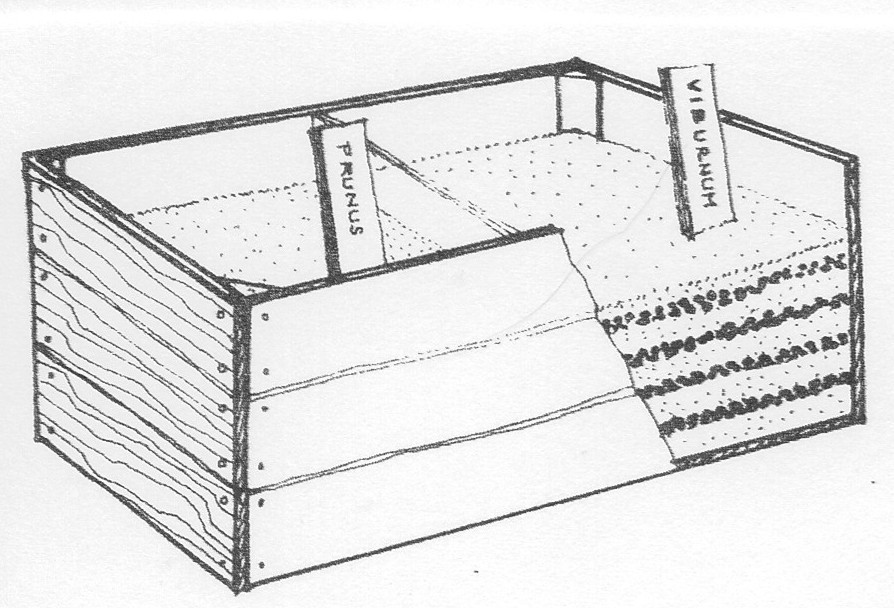 PRUNUS
VIBURNUM